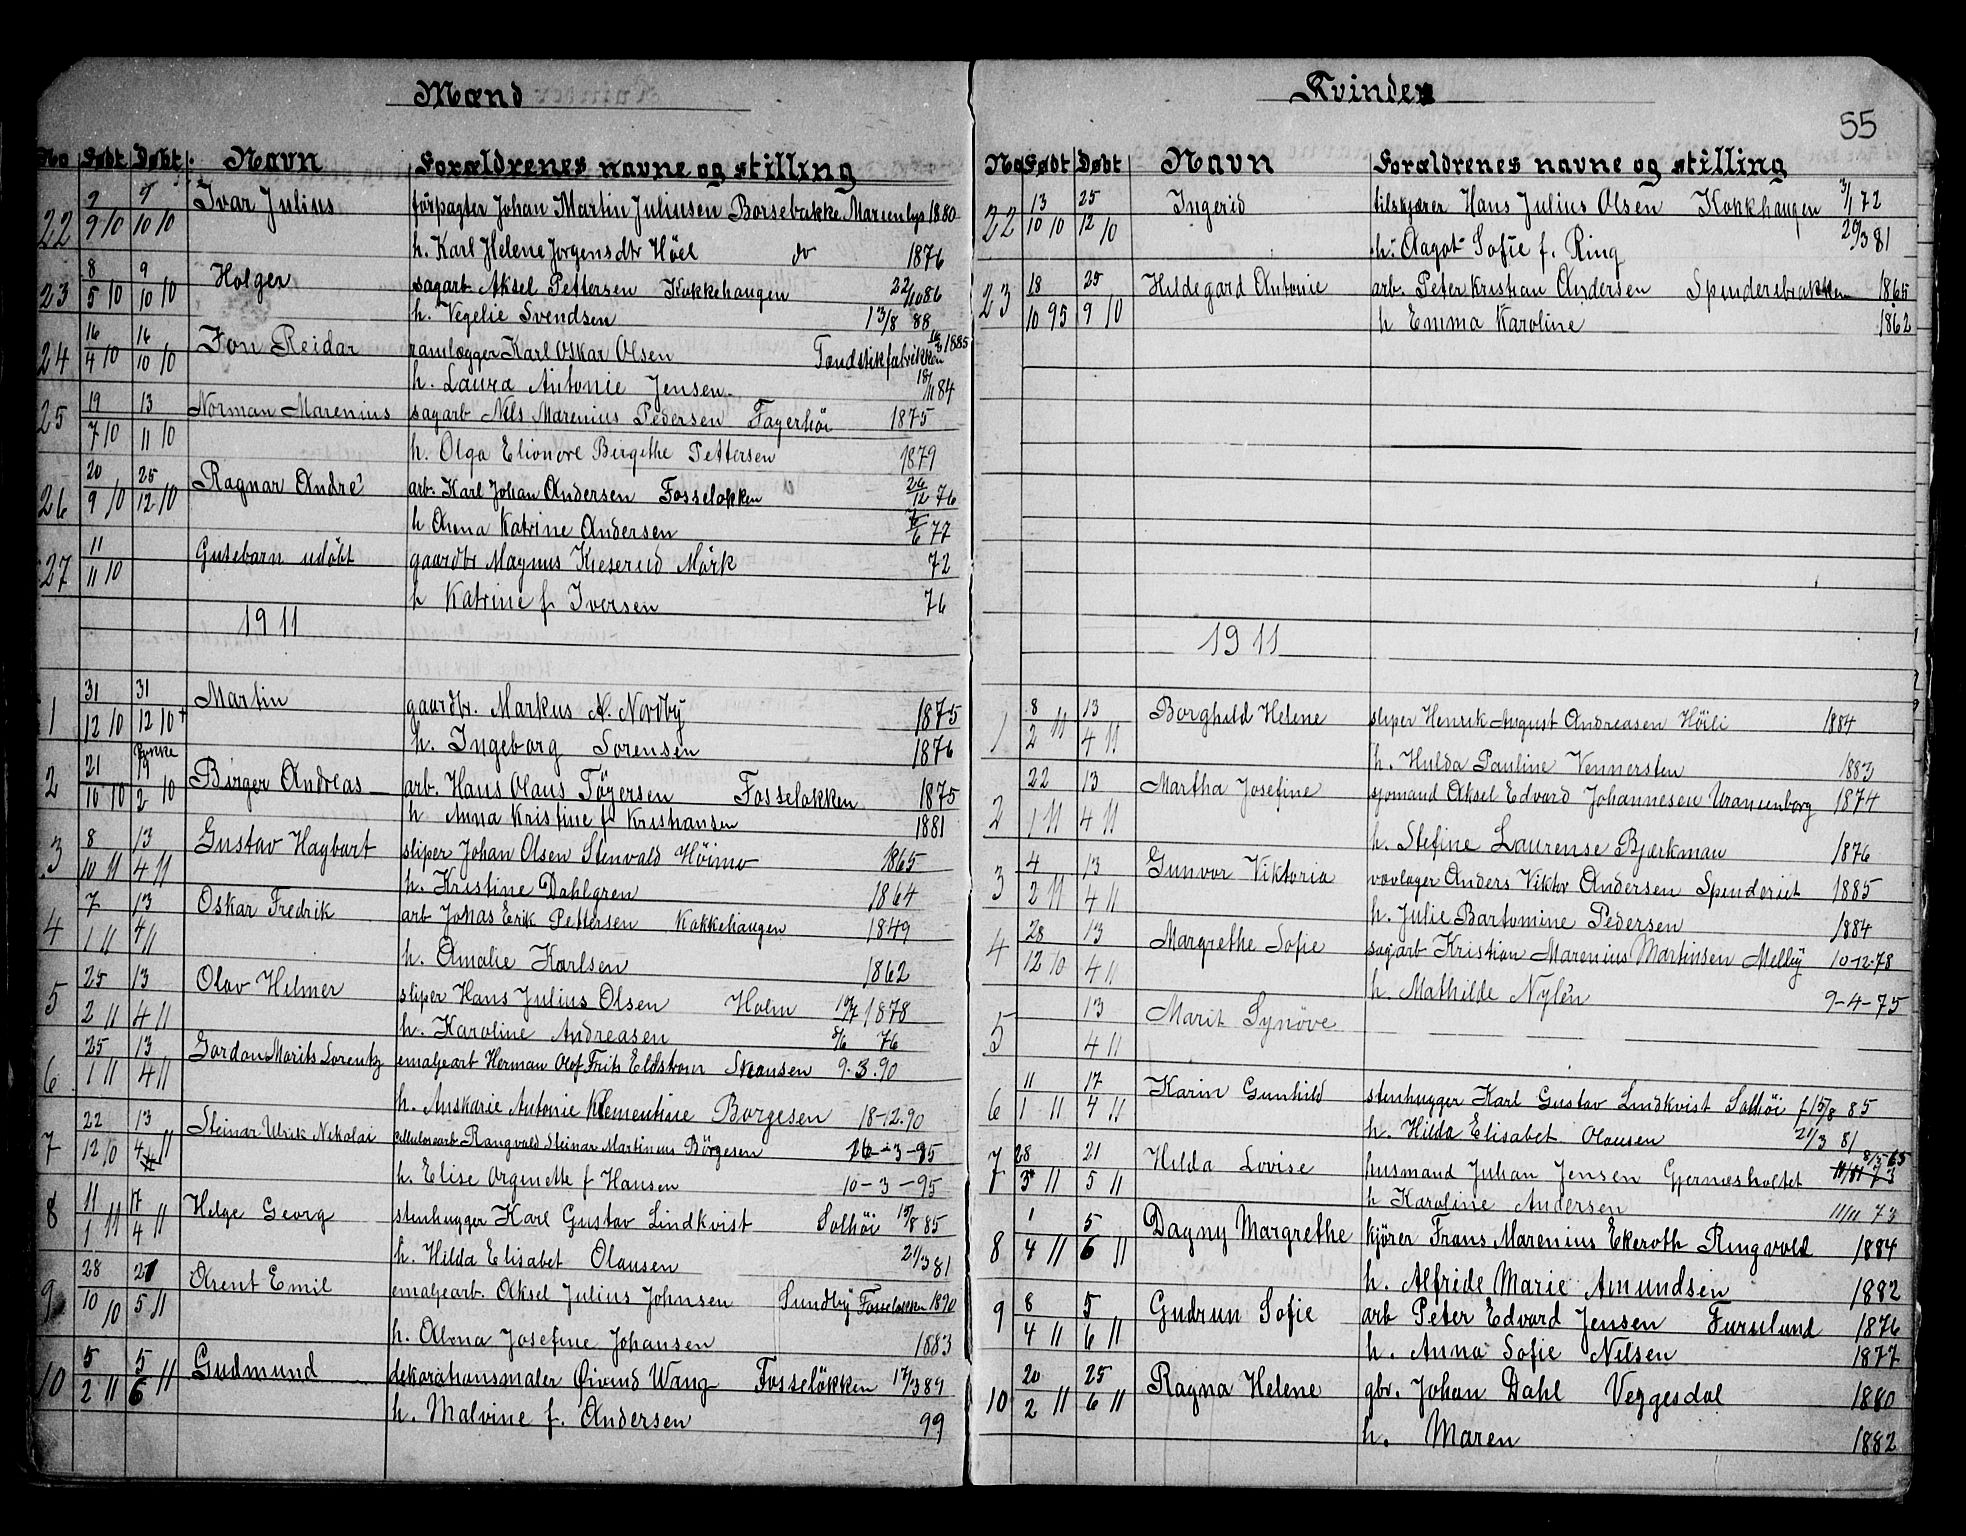 Mænd
No Født Døbt Navn Forældrenes navne og stilling
22 2/9 10 9/10 10 Ivar Julius forpagter Johan Martin Juliusen Borsebakke Marienlys 1880
h. Karl Helene Jørgensdtr Höel do 1876
23 8/5 10 9/10 10 Holger sagarb Aksel Pettersen Kokkehaugen 22/10 86
h. Vegelie Svendsen 13/8 88
24 16/4 10 16/10 10 Jon Reidar Karl Oskar Olsen Tændstikfabrikken 1885
h. Laura Antonie Jensen 18/11 84
25 19/7 10 13/11 10 Norman Marenius sagarb Nils Marenius Pedersen Fagerhöi 1875
h. Olga Elionore Bergithe Pettersen 1879
26 20/9 10 25/12 10 Ragnar André arb. Karl Johan Andersen Fosseløkken 26/12 76
h Anna Katrine Andersen 77
27 11/11 10 Guttebarn udöbt gaardbr Magnus Kieserud Mörk 72
h Katrine f Iversen 76
1911
1 31/12 10 31/12 10+ Martin gaardbr. Markus A. Nordby 1875
h. Ingeborg Sorensen 1876
2 21/10 10 2 10 Birger Andreas arb. Hans Olaus Töyersen Fosseløkken 1875
h Anna Kristine f Kristiansen 1881
3 8/10 11 13/4 11 Gustav Hagbart sliper Johan Olsen Stenvald Höimo 1865
h. Kristine Dahlgren 1864
4 7/1 11 13/4 11 Oskar Fredrik arb Johas Erik Pettersen Kokkehaugen 1849
h. Amalie Karlsen 1862
5 25/2 11 13/4 11 Olav Hilmer sliper Hans Julius Olsen Holm 10/7 1878
h. Karoline Andreasen 8/6 76
6 25/1 11 13/4 11 Gordon Morits Lorentz emaljearb Herman Olof Frits Eldstrom Skansen 9.3.90
h. Anskarie Antonie Klementine Borgesen 18-12.90
7 22/12 10 13/4 11 Steinar Ulrik Nikolai cellulosearb Rangvald Steinar Martineus Börgesen 26-3-85
h. Elise Orginette f Hansen 10-3-95
8 11/1 11 17/4 11 Helge Georg stenhugger Karl Gustav Lindkvist Solhöi 15/8 85
h. Hilda Elisabet Olausen 21/3 81
9 28/10 10 21/5 11 Arent Emil emaljearb. Aksel Julius Johnsen Sundby Fosseløkken 1890
h. Alma Josefine Johansen 1883
10 5/2 11 5/6 11 Gudmund dekorationsmaler Øivind Wang Fosseløkken 17/3 89
h. Malvine f. Andersen 99
Kvinder
55
No Født Døbt Navn Forældrenes navne og stilling
22 13/10 10 25/12 10 Ingerid tilskjærer Hans Julius Olsen Kokkhaugen 3/1 72
h. Aagot Sofie f. Ring 29/3 81
23 18/10 95 25/9 10 Hildegard Antonie arb. Peter Kristian Andersen Spindersbrakken 1865
h Emma Karoline 1862
1911
1 8/2 11 13/4 11 Borghild Helene sliper Henrik August Andreasen Höili 1884
h. Hulda Pauline Vennersten 1883
2 22/1 11 13/4 11 Martha Josefine sjomand Aksel Edvard Johannesen Uranienborg 1874
h. Stefine Laurense Bjerkman 1876
3 4/2 11 13/4 11 Gunvor Viktoria Anders Viktor Andersen Spinderiet 1885
h. Julie Bartomine Pedersen 1884
4 28/12 10 13/4 11 Margrethe Sofie sagarb Kristian Marenius Martinsen Melby 10-12-78
h. Mathilde Nylén 9-4-75
5 13/4 11 Marit Synöve
6 11/1 11 17/4 11 Karin Gunhild stenhugger Karl Gustav Lindkvist Solhöi f 15/8 85
h. Hilda Elisabet Olausen 21/3 81
7 28/3 11 21/5 11 Hilda Lovise husmand Julian Jensen Gjernæsholtet 8/5-65
h Karoline Andersen 11/11 73
8 1/4 11 5/6 11 Dagny Margrethe kjörer Frans Marenius Ekeroth Ringvold 1884
h. Alfride Marie Amundsen 1882
9 8/4 11 5/6 11 Gudrun Sofie arb Peter Edvard Jensen Furulund 1876
h. Anna Sofie Nilsen 1877
10 20/2 11 25/6 11 Ragna Helene gbr. Johan Dahl Veggesdal 1880
h. Maren 1882